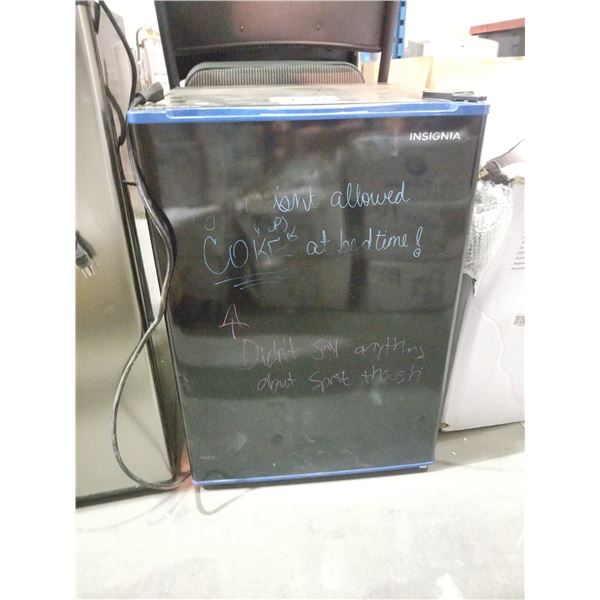 INSIGNIA
isnt allowed
COKE at bedtime!
4
Didn't say anything
about Sprite though